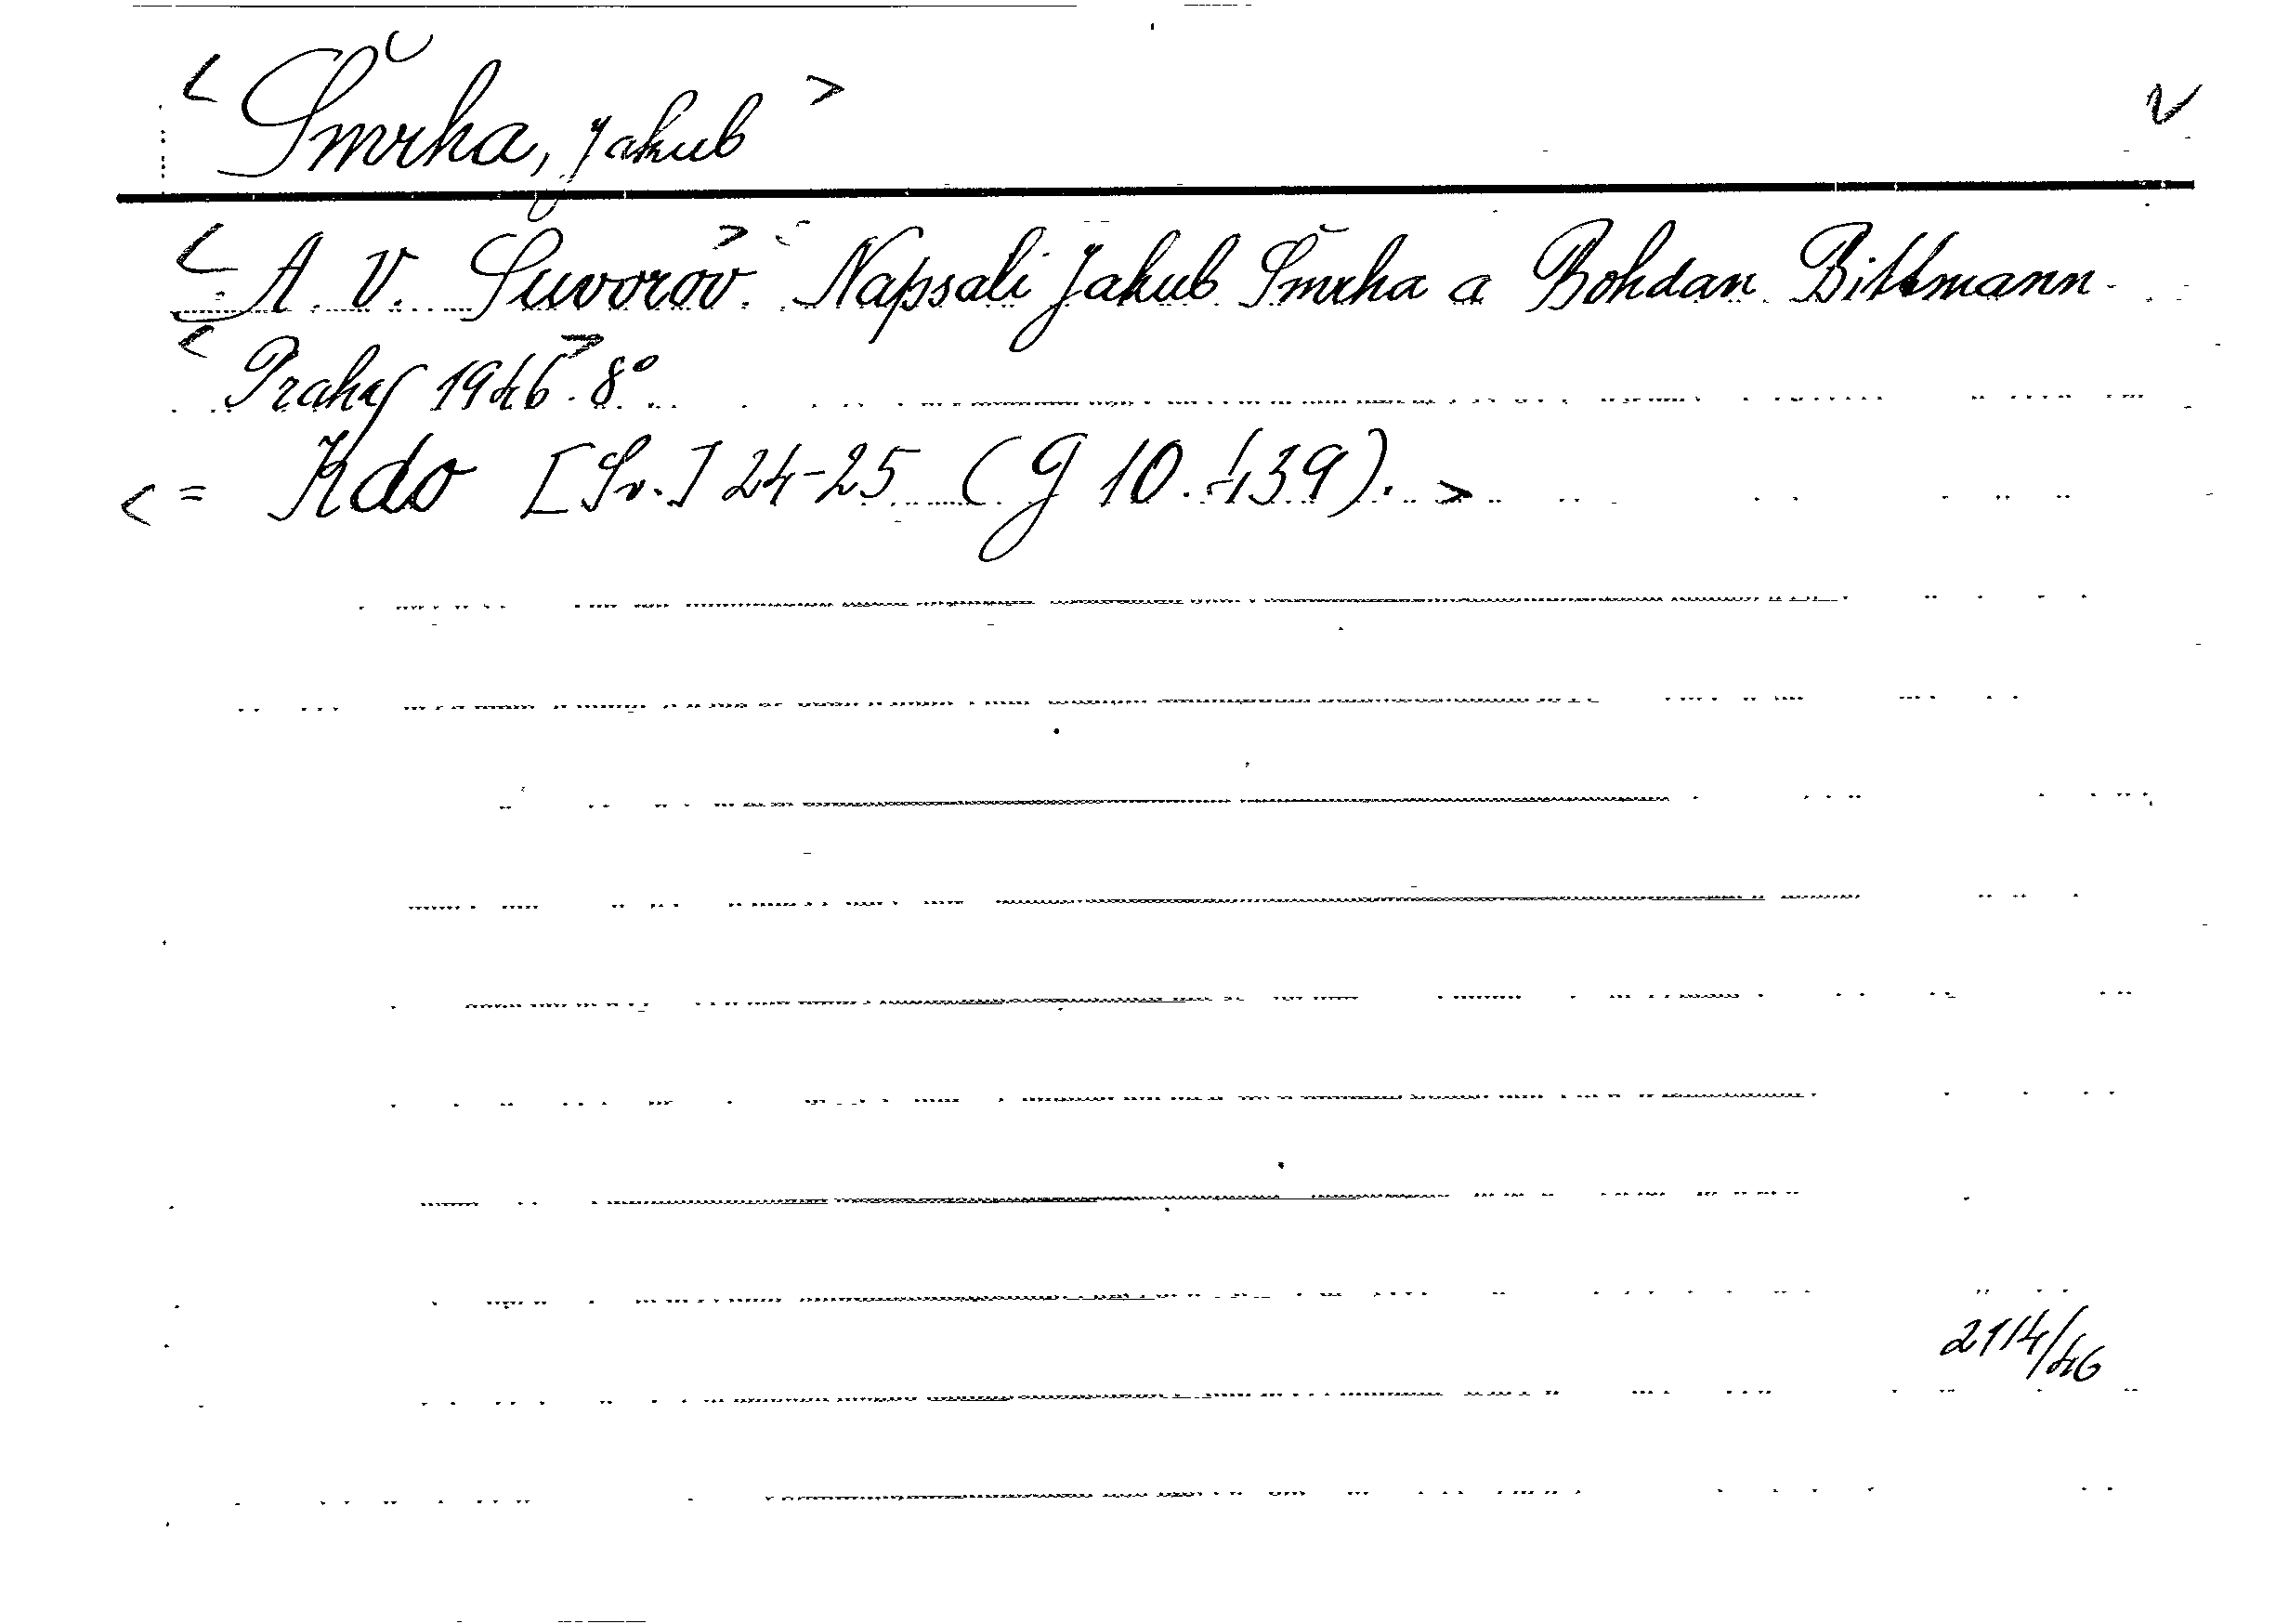 < Šmrha, Jakub > v
< A. V. Suvorov. > Napsali Jakub Šmrha a Bohdan Bittmann.
< Praha 1946. > 8°
< = Kdo [Sv.] 24-25 (G 10.439). >
2114/46